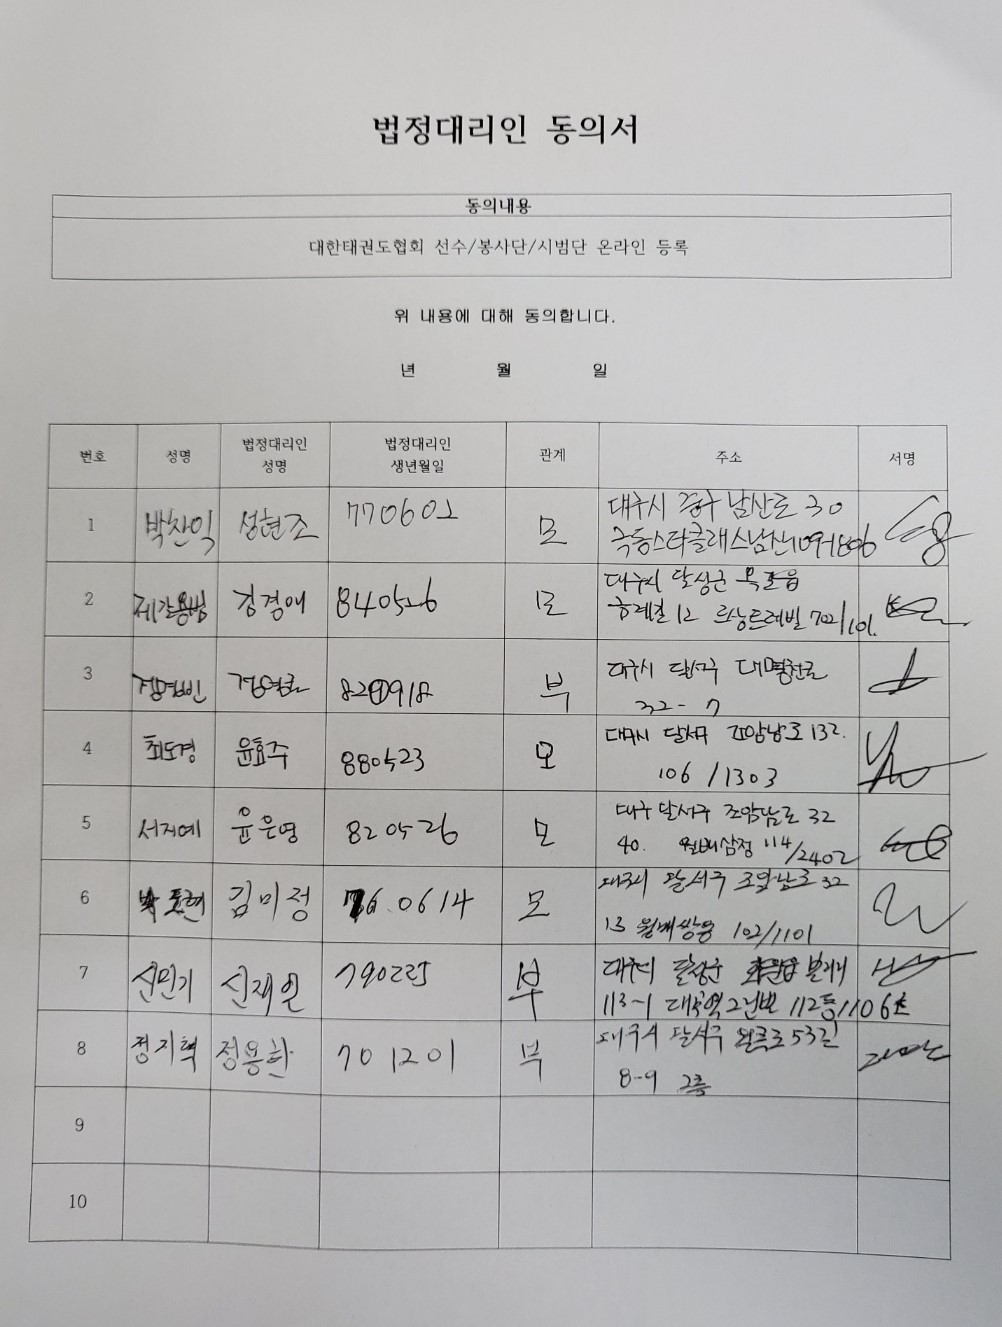 법정대리인 동의서
동의내용
대한태권도협회 선수/봉사단/시범단 온라인 등록
위 내용에 대해 동의합니다.
년 월 일
번호 성명 법정대리인 성명 법정대리인 생년월일 관계 주소 서명
1 박찬익 성현조 770602 모 대구시 중구 남산로 30
극동스타클래스남산
2 제갈용빈 김경애 840526 모 대구시 달성군
12 702/101.
3 820918 부 대구시 달서구 대명천로
32-7
4 최도경 윤효주 880523 모 대구시 달서구 조암남로 132.
106/1303
5 서지예 윤은영 820526 모 대구 달서구 조암남로 32
40. 월배삼정 114/2402
6 김미정 760614 모 대구시 달서구 조암남로 32
13 월배쌍용 102/1101
7 신민기 신재일 부 대구시 달성군
113-1 112동 1106호
8 정지혁 정용한 701201 부 대구시 달서구 53길
8-9 2층
9
10